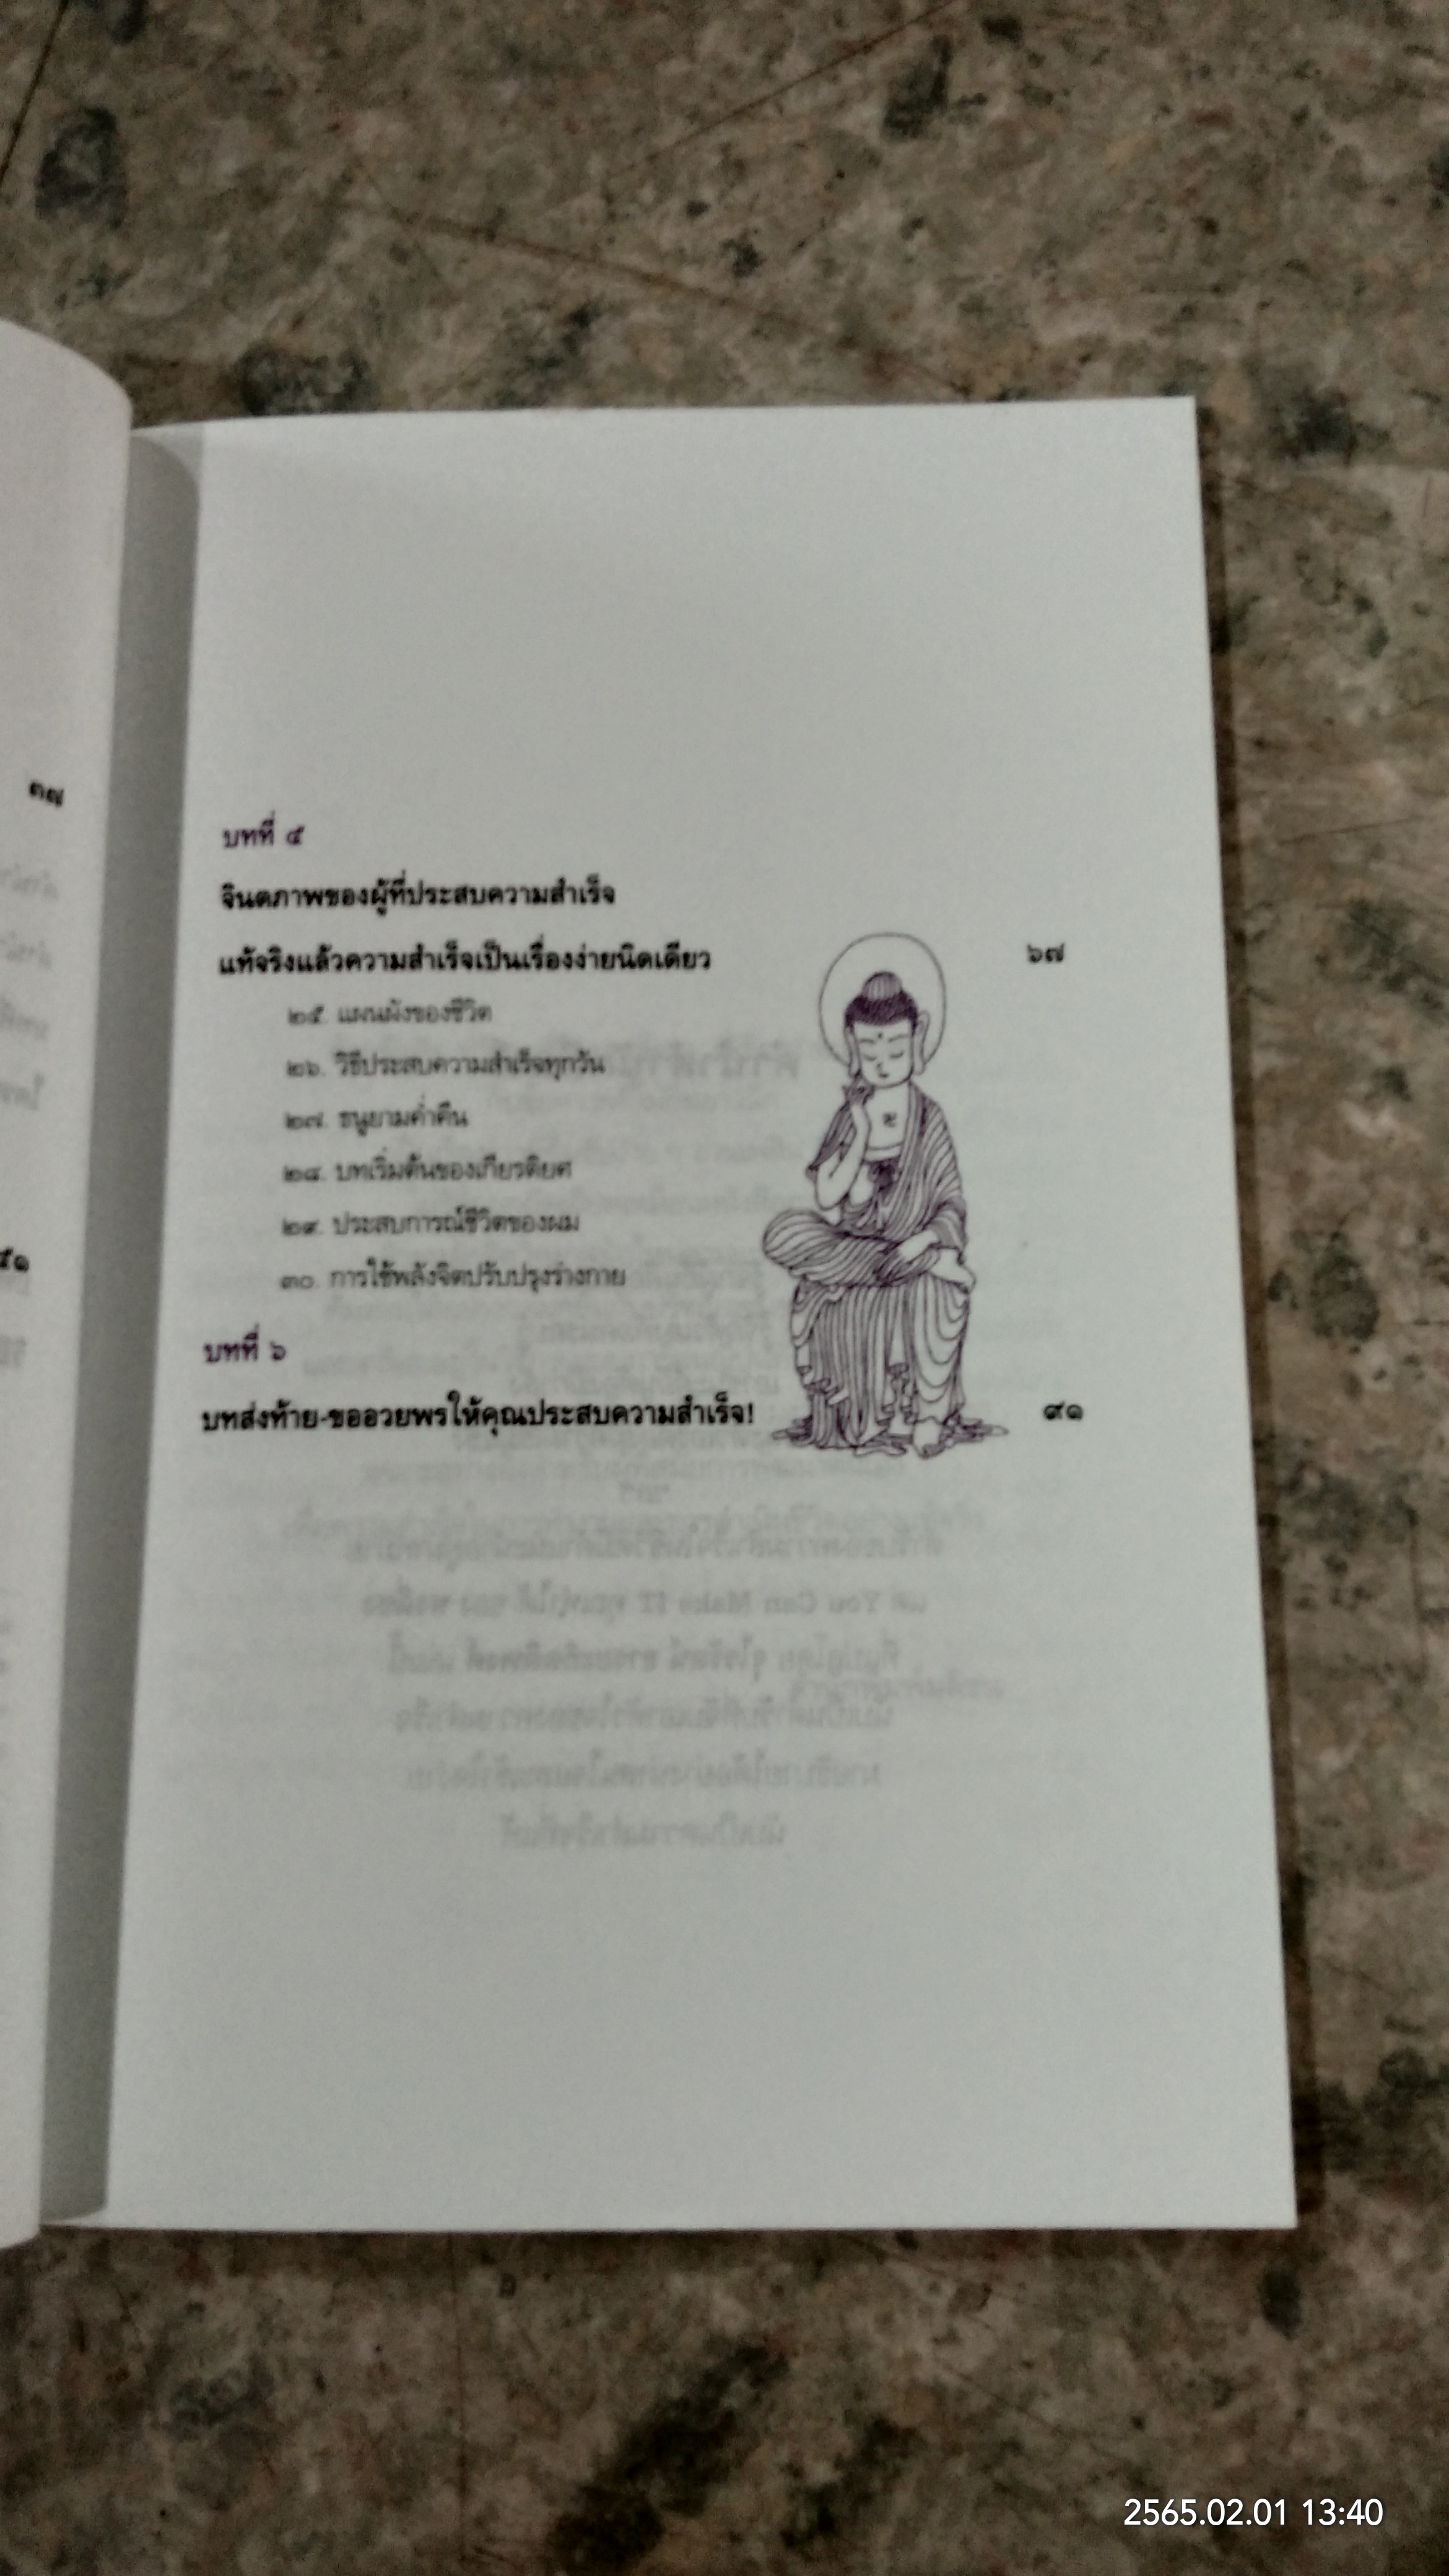 ๓๗
๕๑
บทที่ ๕
จินตภาพของผู้ที่ประสบความสำเร็จ
แท้จริงแล้วความสำเร็จเป็นเรื่องง่ายนิดเดียว ๖๗
๒๕. แผนผังของชีวิต
๒๖. วิธีประสบความสำเร็จทุกวัน
๒๗. ธนูยามค่ำคืน
๒๘. บทเริ่มต้นของเกียรติยศ
๒๙. ประสบการณ์ชีวิตของผม
๓๐. การใช้พลังจิตปรับปรุงร่างกาย
บทที่ ๖
บทส่งท้าย-ขออวยพรให้คุณประสบความสำเร็จ! ๙๑
2565.02.01 13:40